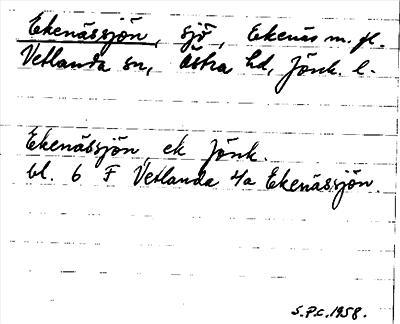 Ekenässjön, sjö, Ekenäs m. fl.
Vetlanda sn, Östra hd, Jönk. l.
Ekenässjön, ek Jönk.
bl. 6 F Vetlanda 4a Ekenässjön.
S.P.C. 1958.